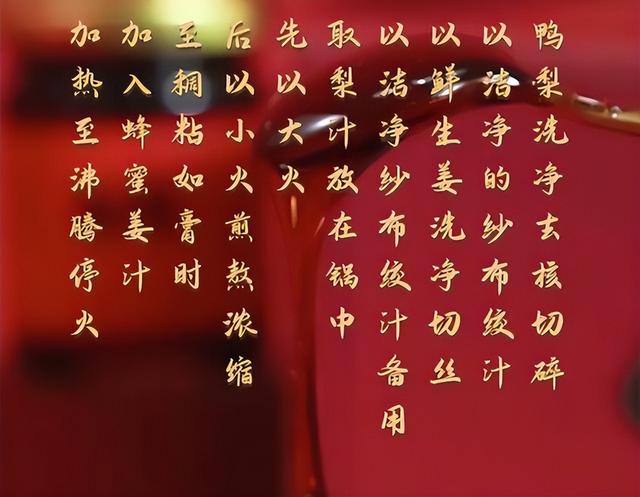 鸭梨洗净去核切碎
以洁净的纱布绞汁
以鲜生姜洗净切丝
以洁净纱布绞汁备用
取梨汁放在锅中
先以大火
后以小火煎熬浓缩
至稠粘如膏时
加入蜂蜜姜汁
加热至沸腾停火